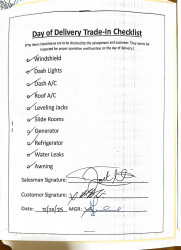 Day of Delivery Trade-In Checklist
(The items listed below are to be checked by the salesperson and customer. They are to be
inspected for proper operation and function on the day of delivery.)
Windshield
Dash Lights
Dash A/C
Roof A/C
Leveling Jacks
Slide Rooms
Generator
Refrigerator
Water Leaks
Awning
Salesman Signature:
Customer Signature:
Date: MGR: